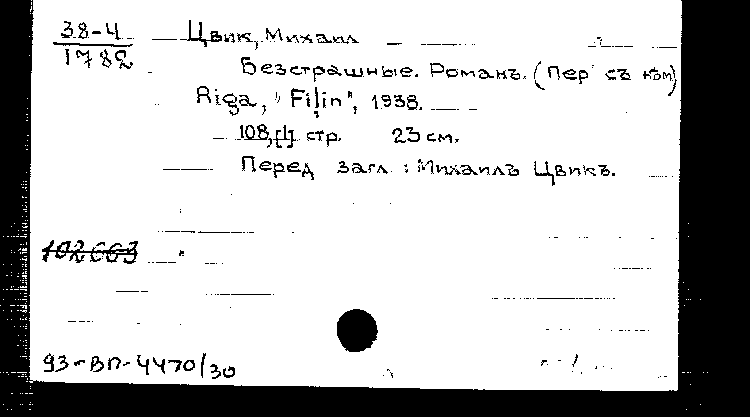 38-4
1782
Цвик, Михаил
Безстрашные. Романъ. (Пер съ нѣм)
Riga, "Fiļin", 1938.
108,[1] стр. 23 см.
Перед загл : Михаилъ Цвикъ.
102663
93-ВП-4470/30